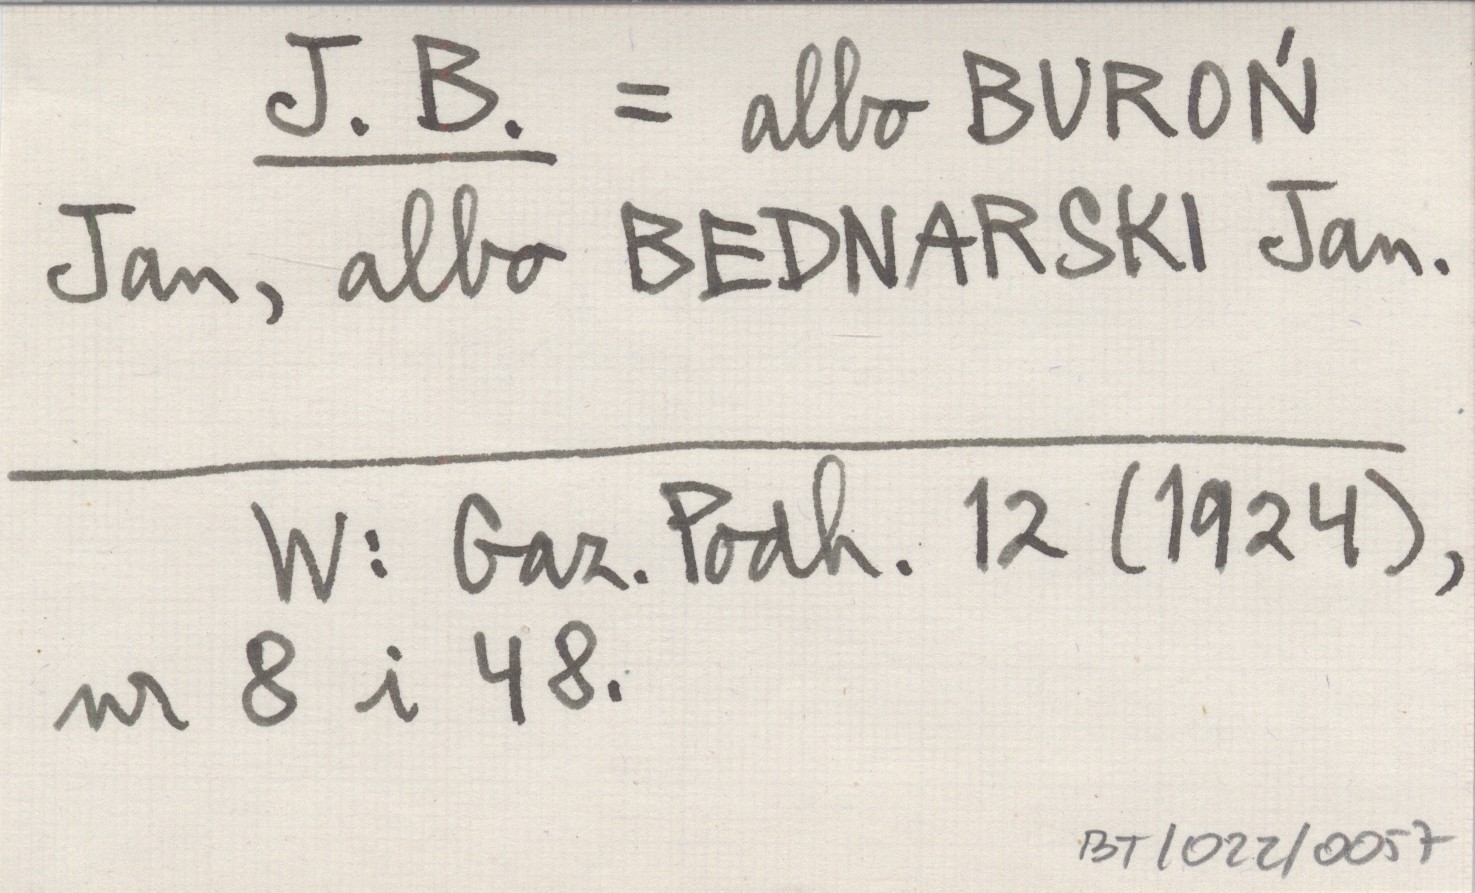 J. B. = albo BUROŃ
Jan, albo BEDNARSKI Jan.
W: Gaz. Podh. 12 (1924),
nr 8 i 48.
BT/022/0057